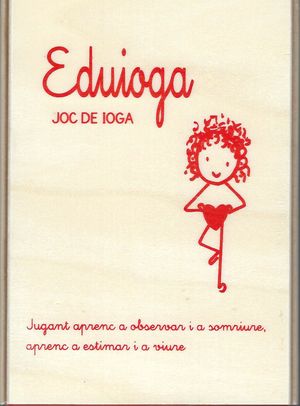 Eduioga
JOC DE IOGA
Jugant aprenc a observar i a somriure,
aprenc a estimar i a viure